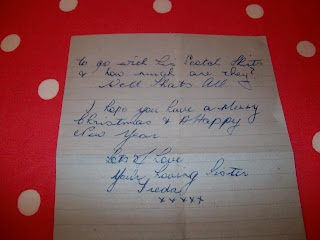 to go with his Scotch Skirts
& how much are they?
Well Thats All
I hope you have a Merry
Christmas & A Happy
New Year
Lots of Love
Your Loving Sister
Freda
xxxxx